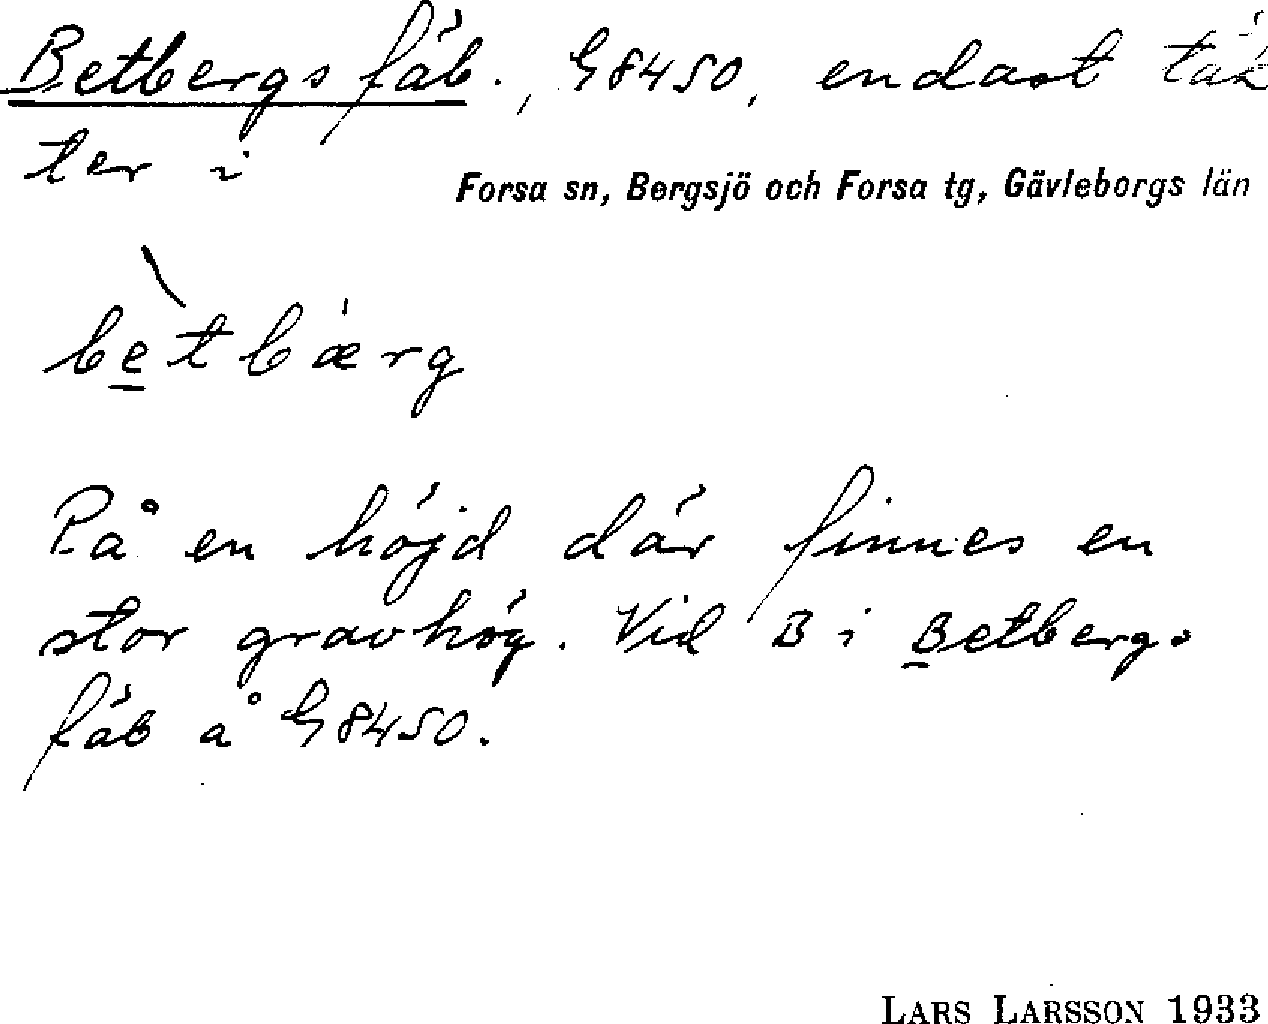 Betbergs fäb., G8450, endast täk
ter i
Forsa sn, Bergsjö och Forsa tg, Gävleborgs län
bètbærg
På en höjd där finnes en
stor gravhög. Vid B i Betbergs
fäb å G8450.
LARS LARSSON 1933